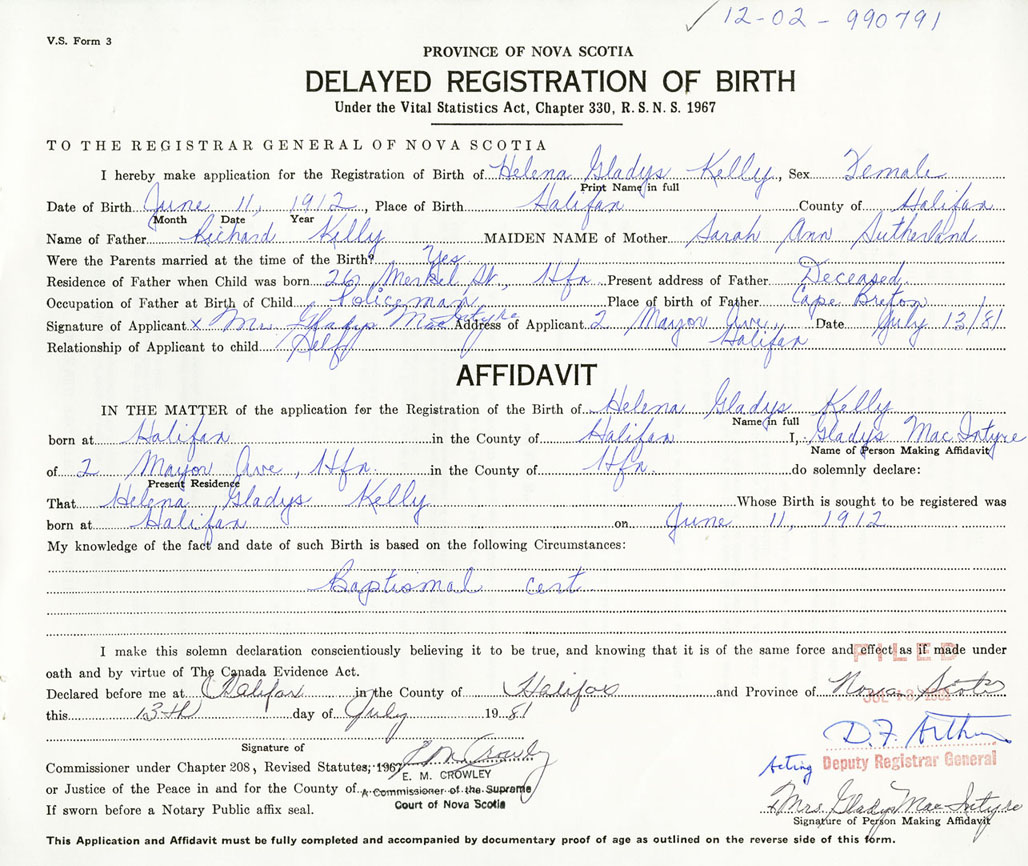 12-02-990791
V.S. Form 3
PROVINCE OF NOVA SCOTIA
DELAYED REGISTRATION OF BIRTH
Under the Vital Statistics Act, Chapter 330, R.S.N.S. 1967
TO THE REGISTRAR GENERAL OF NOVA SCOTIA
I hereby make application for the Registration of Birth of Helena Gladys Kelly, Sex Female
Print Name in full
Date of Birth June 11, 1912, Place of Birth Halifax County of Halifax
Month Date Year
Name of Father Richard Kelly MAIDEN NAME of Mother Sarah Ann Sutherland
Were the Parents married at the time of the Birth? Yes
Residence of Father when Child was born 26 Merkel St., Hfx Present address of Father Deceased
Occupation of Father at Birth of Child Policeman Place of birth of Father Cape Breton
Signature of Applicant x Mrs Gladys MacIntyre Address of Applicant 2 Mayor Ave., Date July 13/81
Relationship of Applicant to child Self Halifax
AFFIDAVIT
IN THE MATTER of the application for the Registration of the Birth of Helena Gladys Kelly
Name in full
born at Halifax in the County of Halifax I, Gladys MacIntyre
Name of Person Making Affidavit
of 2 Mayor Ave, Hfx. in the County of Hfx. do solemnly declare:
Present Residence
That Helena Gladys Kelly Whose Birth is sought to be registered was
born at Halifax on June 11, 1912
My knowledge of the fact and date of such Birth is based on the following Circumstances:
Baptismal cert
I make this solemn declaration conscientiously believing it to be true, and knowing that it is of the same force and effect as if made under
FILED
oath and by virtue of The Canada Evidence Act.
Declared before me at Halifax in the County of Halifax and Province of Nova Scotia
this 13th day of July 1981
D.F. Arthur
Signature of
E M Crowley
Acting Deputy Registrar General
Commissioner under Chapter 208, Revised Statutes, 1967
E. M. CROWLEY
or Justice of the Peace in and for the County of
A Commissioner of the Supreme
Court of Nova Scotia
x Mrs. Gladys MacIntyre
Signature of Person Making Affidavit
If sworn before a Notary Public affix seal.
This Application and Affidavit must be fully completed and accompanied by documentary proof of age as outlined on the reverse side of this form.